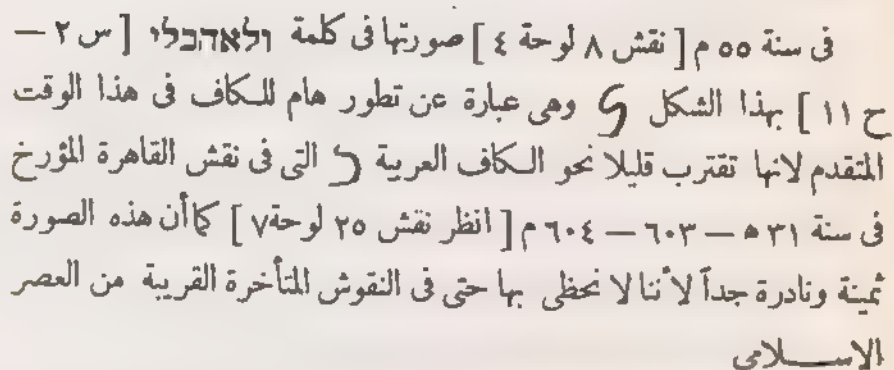 فى سنة ٥٥ م [ نقش ٨ لوحة ٤ ] صورتها فى كلمة ולאהבלי [ س ٢ —
ح ١١ ] بهذا الشكل وهى عبارة عن تطور هام للكاف فى هذا الوقت
المتقدم لانها تقترب قليلا نحو الكاف العربية التى فى نقش القاهرة المؤرخ
فى سنة ٣١ ه — ٦٠٣ — ٦٠٤ م [ انظر نقش ٢٥ لوحة ٧ ] كما أن هذه الصورة
ثمينة ونادرة جداً لأننا لا نحظى بها حتى فى النقوش المتأخرة القريبة من العصر
الاسلامى